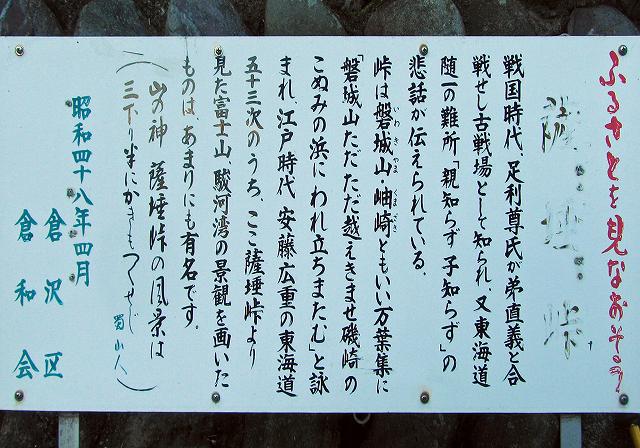 ふるさとを見なおそう
薩埵峠
戦国時代、足利尊氏が弟直義と合
戦せし古戦場として知られ、又東海道
随一の難所「親知らず子知らず」の
悲話が伝えられている。
峠は磐城山・岫崎ともいい万葉集に
いわきやま くきざき
「磐城山ただただ越えきませ磯崎の
こぬみの浜にわれ立ちまたむ」と詠
まれ、江戸時代 安藤広重の東海道
五十三次のうち、ここ薩埵峠より
見た富士山、駿河湾の景観を画いた
ものは、あまりにも有名です。
山の神 薩埵峠の風景は
三下り半にかきもつくせじ
蜀山人
昭和四十八年四月
倉沢区
倉和会